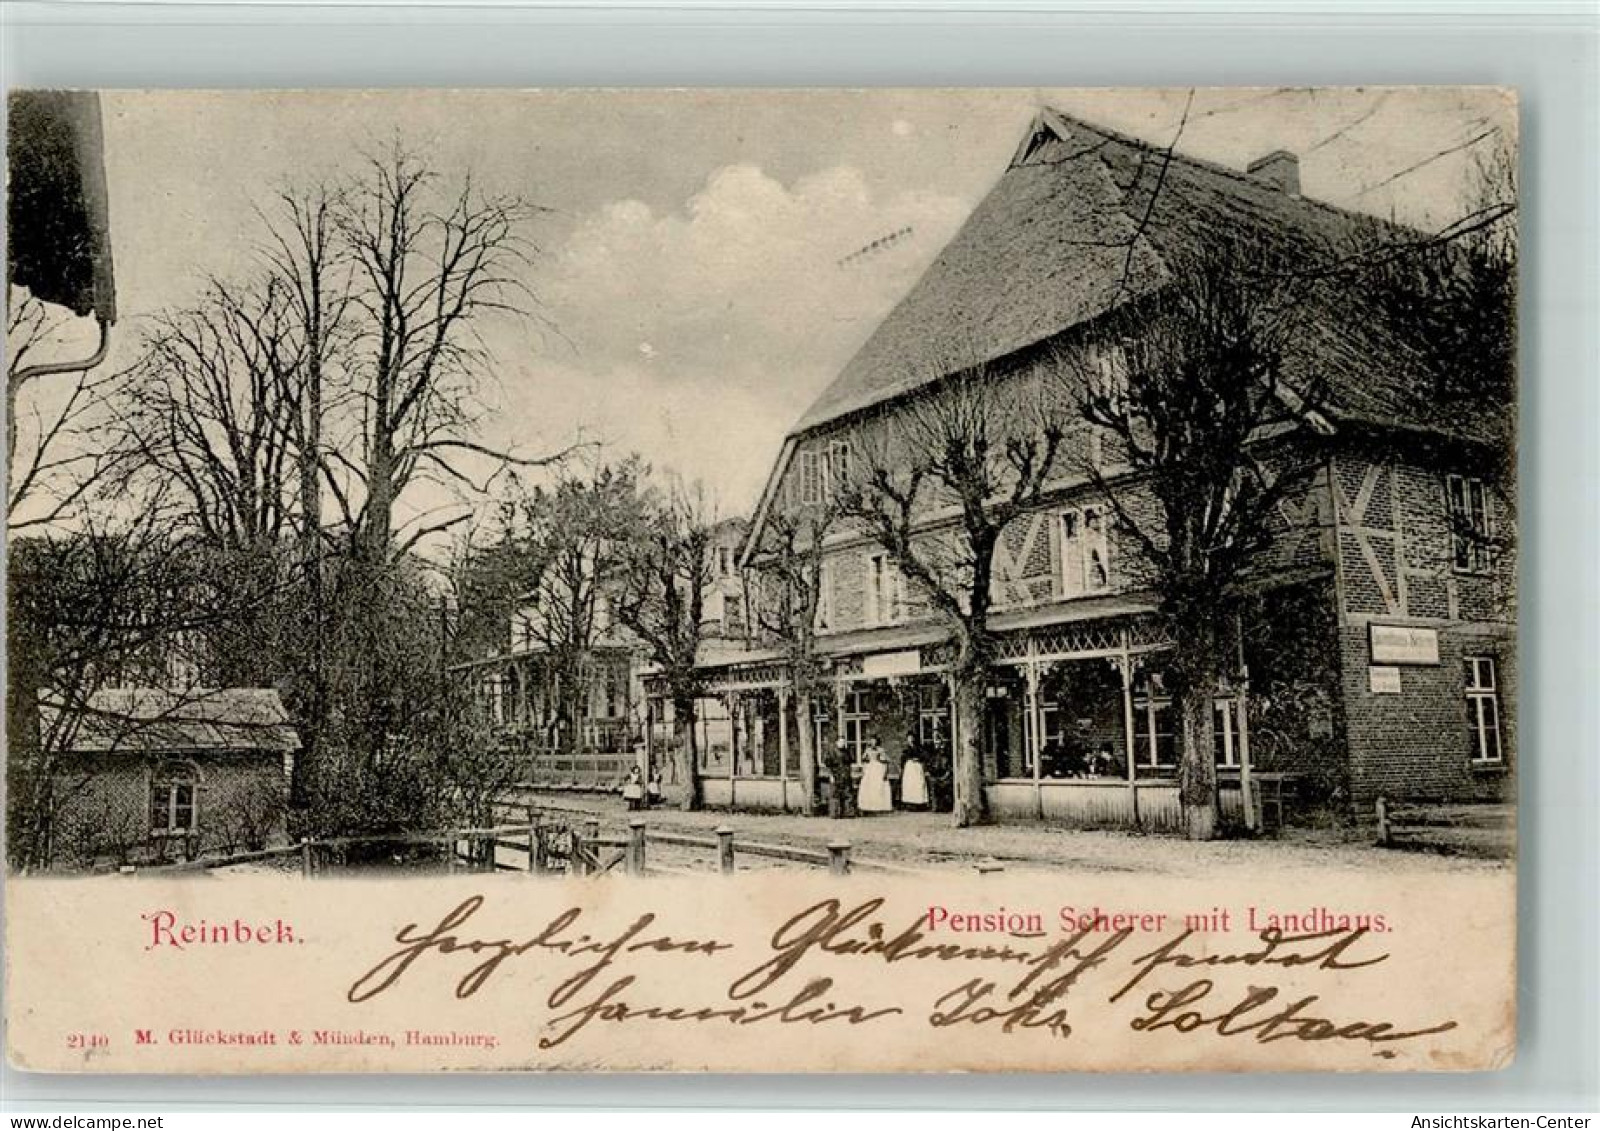 Reinbek.
Pension Scherer mit Landhaus.
Herzlichen Glückwunsch sendet
Familie Johs. Soltau
2140 M. Glückstadt & Münden, Hamburg.
Ansichtskarten-Center